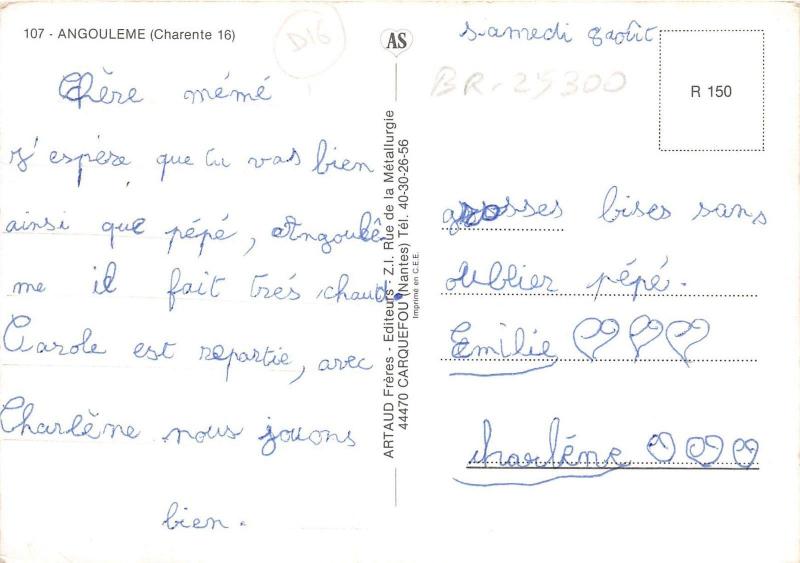 107 - ANGOULEME (Charente 16)
D16
AS
samedi 8 août
BR. 25300
R 150
Chère mémé
J'espère que tu vas bien
ainsi que pépé, Angoulê
me il fait trés chaud.
Carole est repartie, avec
Charlène nous jouons
bien.
ARTAUD Frères - Editeurs - Z.I. Rue de la Métallurgie
44470 CARQUEFOU (Nantes) Tél. 40-30-26-56
Imprimé en C.E.E.
grosses bises sans
oublier pépé.
Emilie
charléne